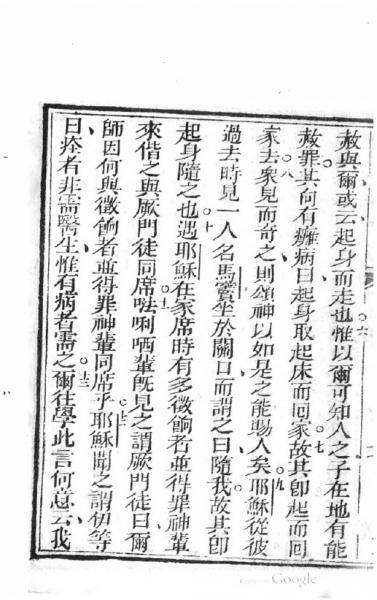 赦與爾或云起身而走也。六惟以爾可知人之子在地有能
赦罪其向有癱病曰起身取起床而回家。七故其卽起而回
家去。八衆見而奇之則頌神以如是之能賜人矣。九耶穌從彼
過去時見一人名馬竇坐於關口而謂之曰隨我。故其卽
起身隨之也。十遇耶穌在家席時有多徵餉者並得罪神輩
來偕之與厥門徒同席。十一唎哂輩旣見之謂厥門徒曰爾
師因何與徵餉者並得罪神輩同席乎。十二耶穌聞之謂伊等
曰痊者非需醫生惟有病者需之。十三爾往學此言何意云我
Google